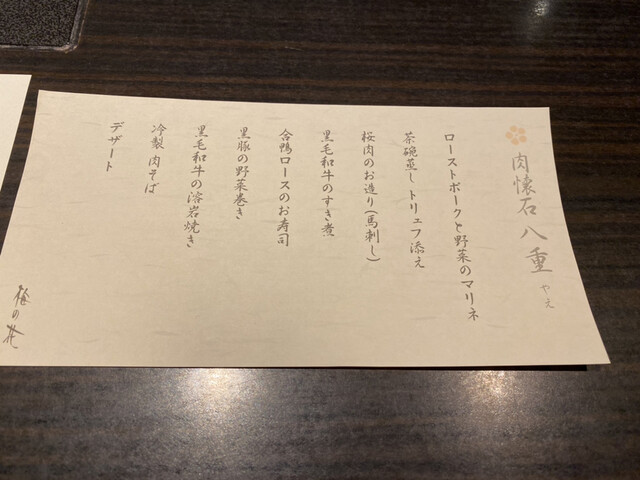 肉懐石 八重 やえ
ローストポークと野菜のマリネ
茶碗蒸し トリュフ添え
桜肉のお造り(馬刺し)
黒毛和牛のすき煮
合鴨ロースのお寿司
黒豚の野菜巻き
黒毛和牛の溶岩焼き
冷製 肉そば
デザート
梅の花